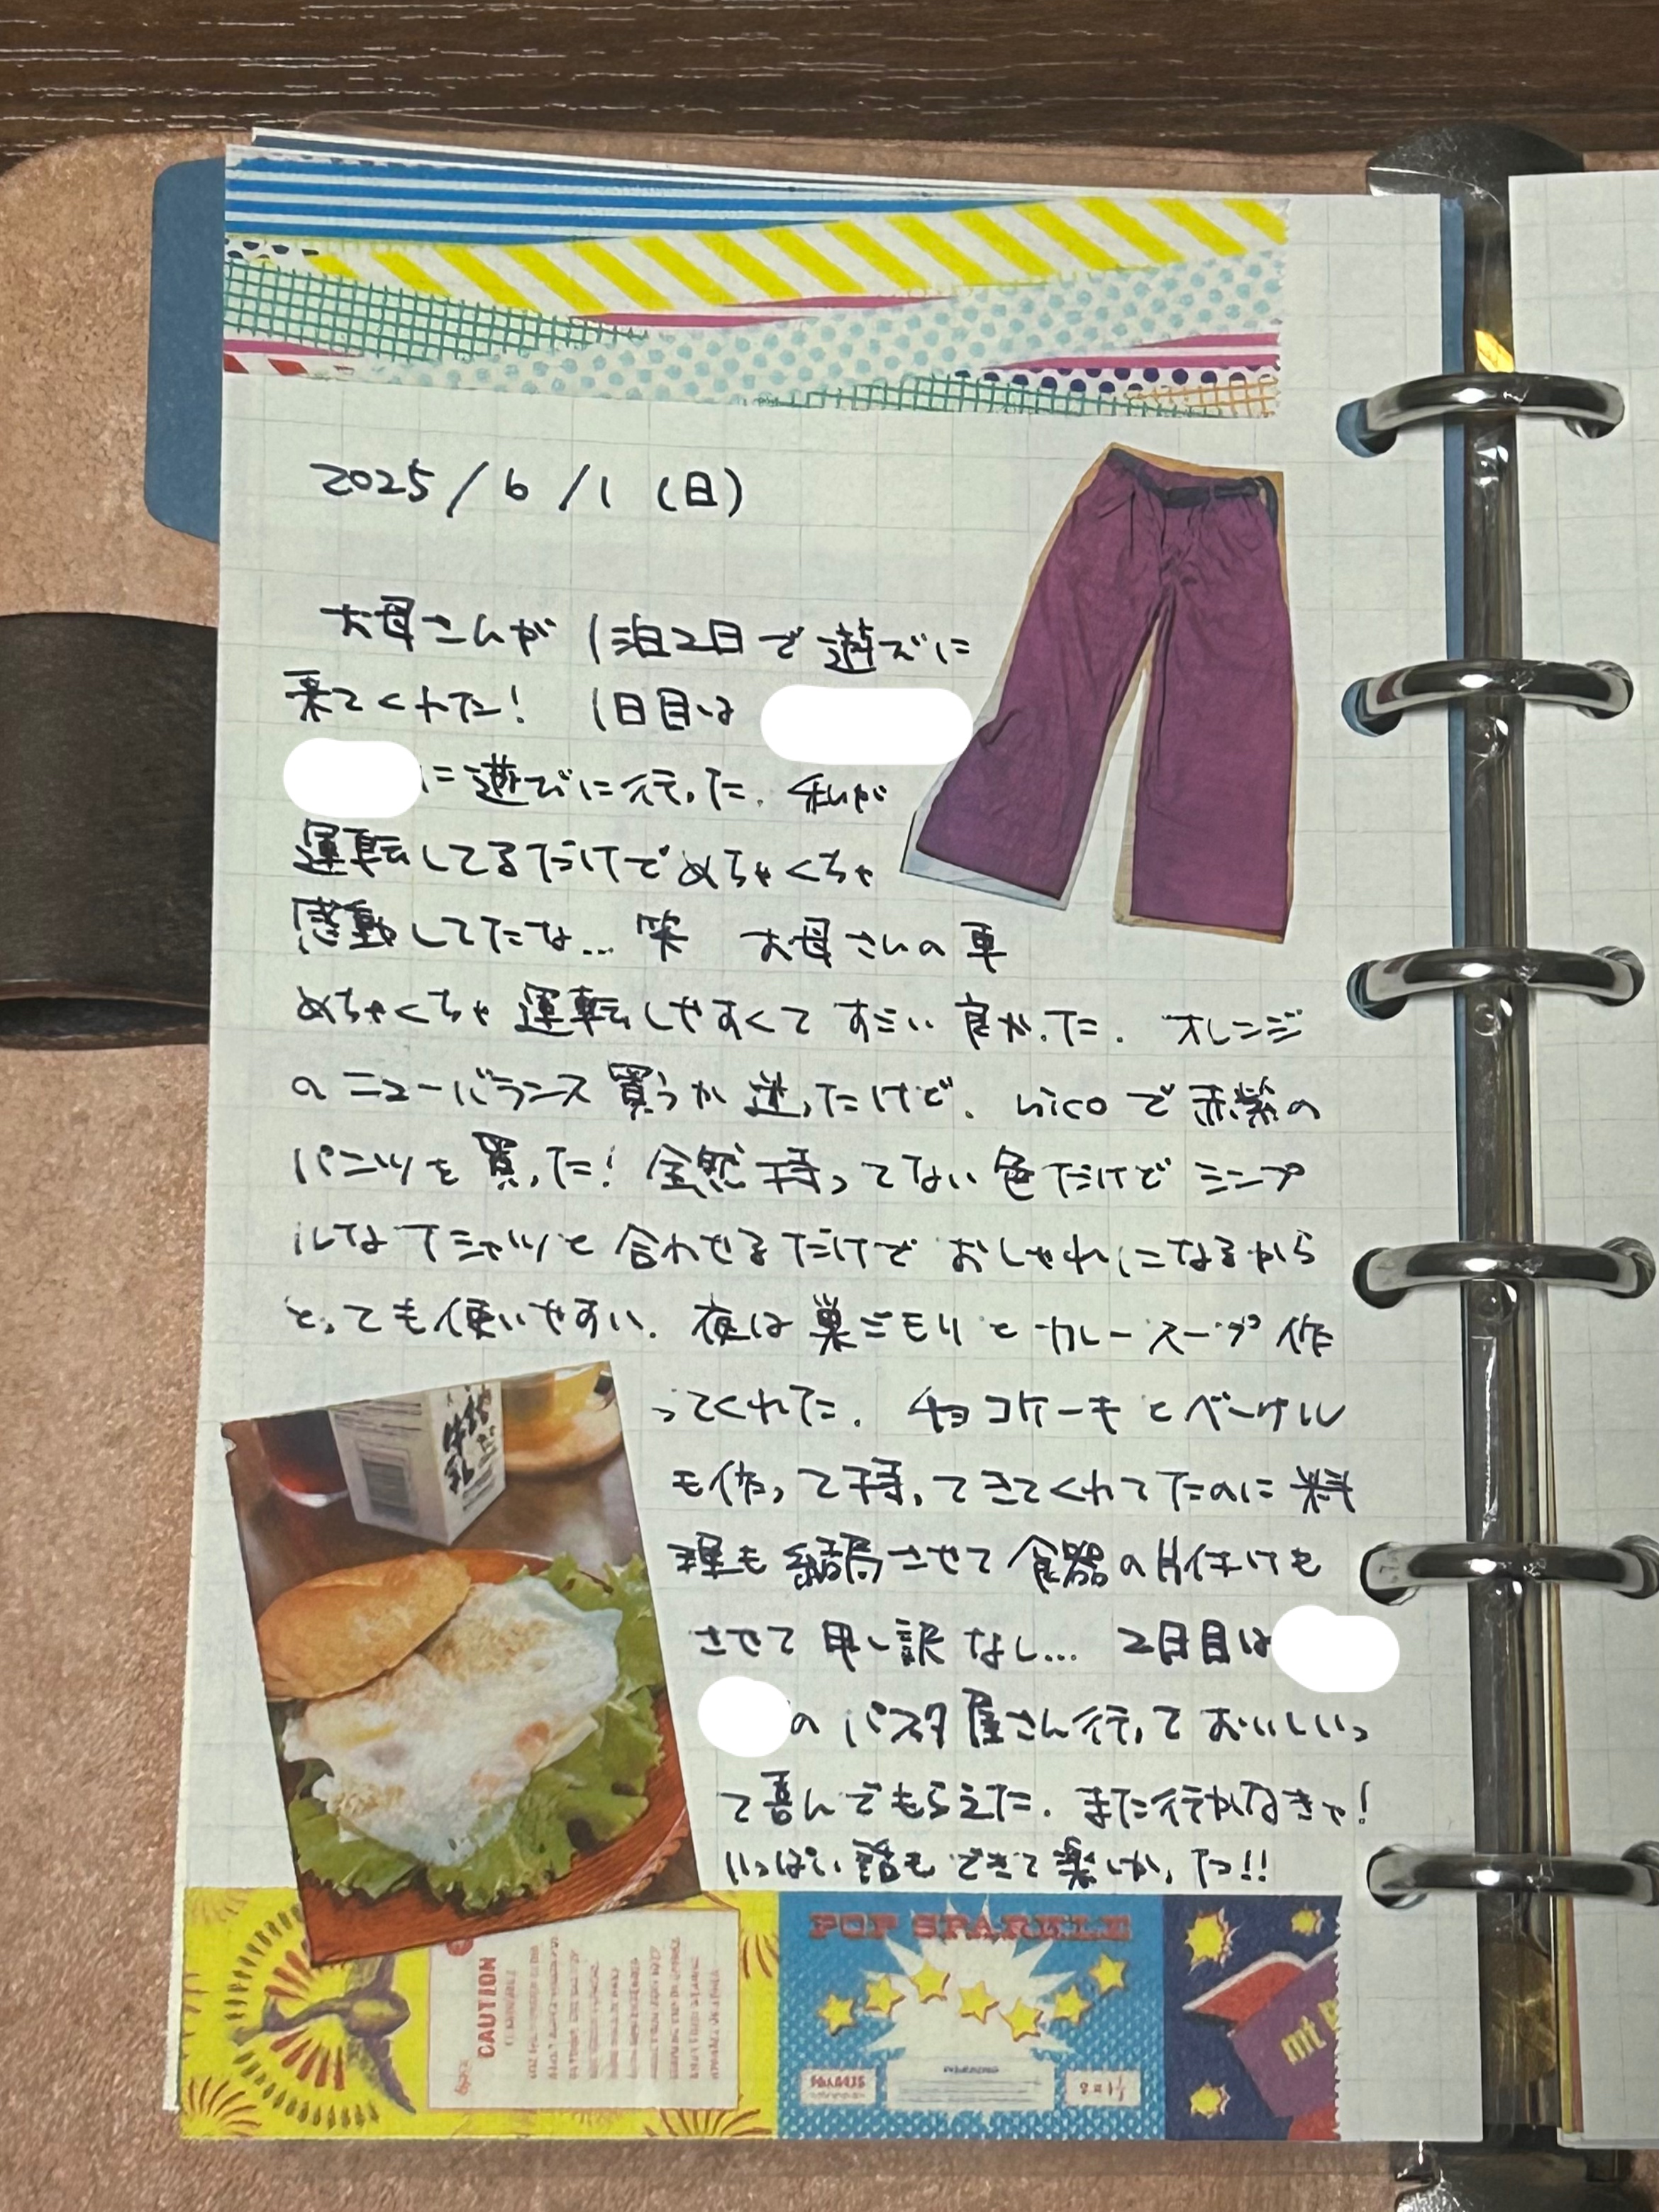 2025/6/1(日)
お母さんが1泊2日で遊びに
来てくれた! 1日目は
に遊びに行った. 私が
運転してるだけでめちゃくちゃ
感動してたな... 笑 お母さんの車
めちゃくちゃ運転しやすくてすごい良かった. オレンジ
のニューバランス買うか迷ったけど, nicoで赤紫の
パンツを買った! 全然持ってない色だけどシンプ
ルなTシャツと合わせるだけでおしゃれになるから
とっても使いやすい. 夜は巣ごもりとカレースープ作
ってくれた. チョコケーキとベーグル
も作って持ってきてくれてたのに料
理も結局させて食器の片付けも
させて申し訳なし... 2日目は
のパスタ屋さん行っておいしいっ
て喜んでもらえた. また行かなきゃ!
いっぱい話もできて楽しかった!!
牛乳
CAUTION
POP SPARKLE
mt